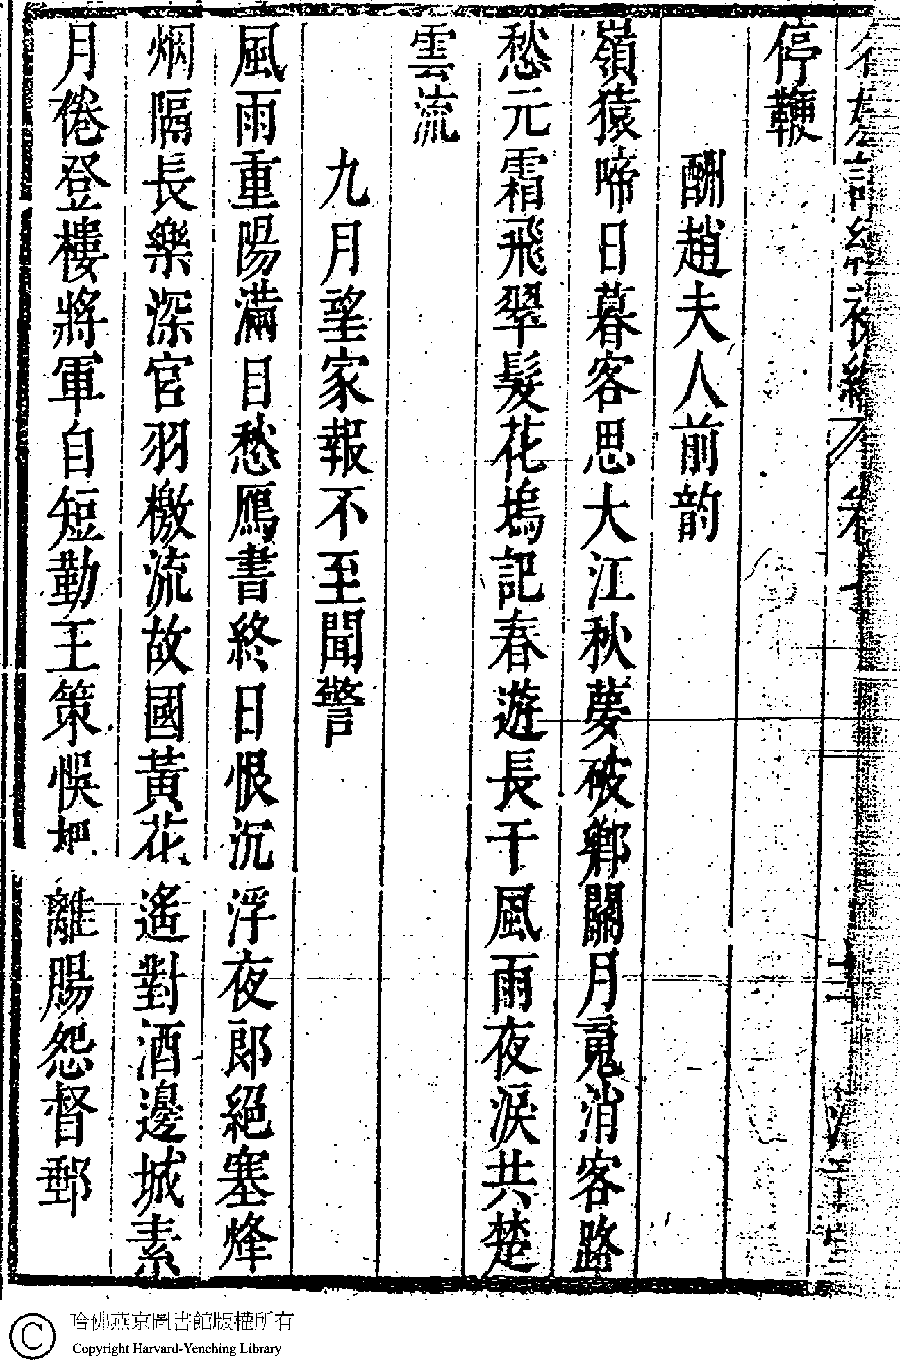 名媛詩緯初編 卷
停鞭
酬趙夫人前韵
嶺猿啼日暮客思大江秋夢破鄉關月䰟消客路
愁元霜飛翠髮花塢記春遊長干風雨夜淚共楚
雲流
九月望家報不至聞警
風雨重陽滿目愁鴈書終日恨沉浮夜郎絕塞烽
烟隔長樂深官羽檄流故國黃花遙對酒邊城素
月倦登樓將軍自短勤王策悞把離腸怨督郵
哈佛燕京圖書館版權所有
Copyright Harvard-Yenching Library